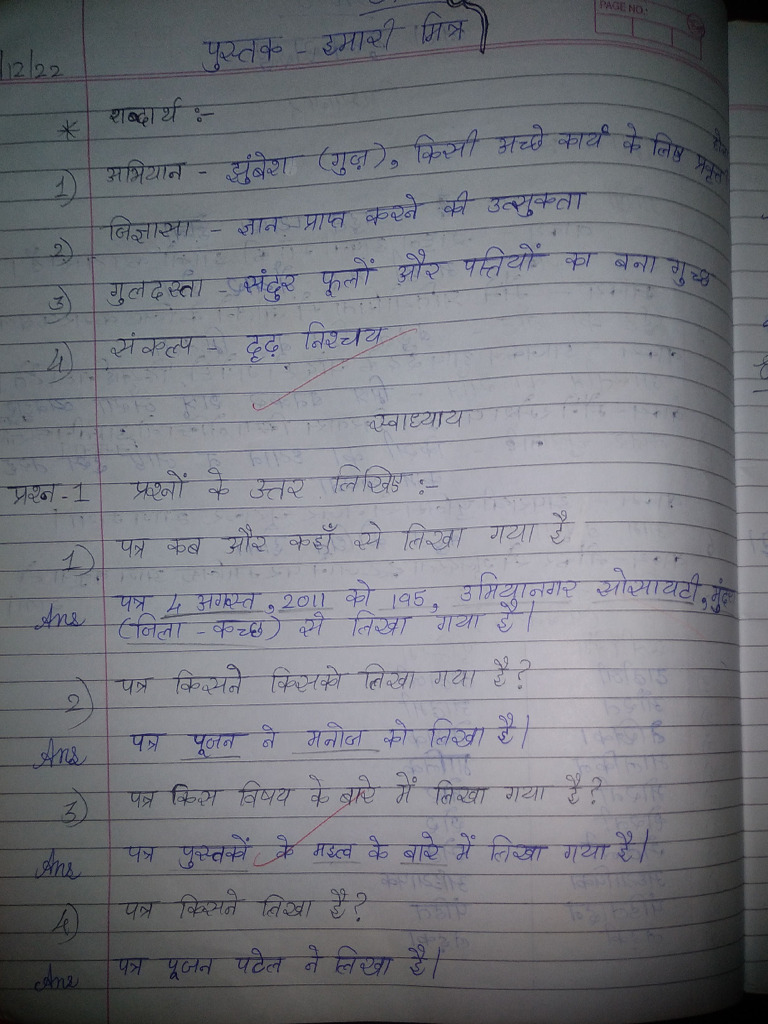 PAGE NO.:
/12/22
पुस्तक - हमारी मित्र
* शब्दार्थ :-
1) अभियान - झुंबेश (गुज़), किसी अच्छे कार्य के लिए प्रवृत्त
2) जिज्ञासा - ज्ञान प्राप्त करने की उत्सुकता
3) गुलदस्ता - संदुर फूलों और पत्तियों का बना गुच्छ
4) संकल्प - दृढ़ निश्चय
स्वाध्याय
प्रश्न-1 प्रश्नों के उत्तर लिखिए :-
1) पत्र कब और कहाँ से लिखा गया है
Ans पत्र 4 अगस्त, 2011 को 195, उमियानगर सोसायटी,
(जिला - कच्छ) से लिखा गया है।
2) पत्र किसने किसको लिखा गया है?
Ans पत्र पूजन ने मनोज को लिखा है।
3) पत्र किस विषय के बारे में लिखा गया है?
Ans पत्र पुस्तकों के महत्व के बारे में लिखा गया है।
4) पत्र किसने लिखा है?
Ans पत्र पूजन पटेल ने लिखा है।